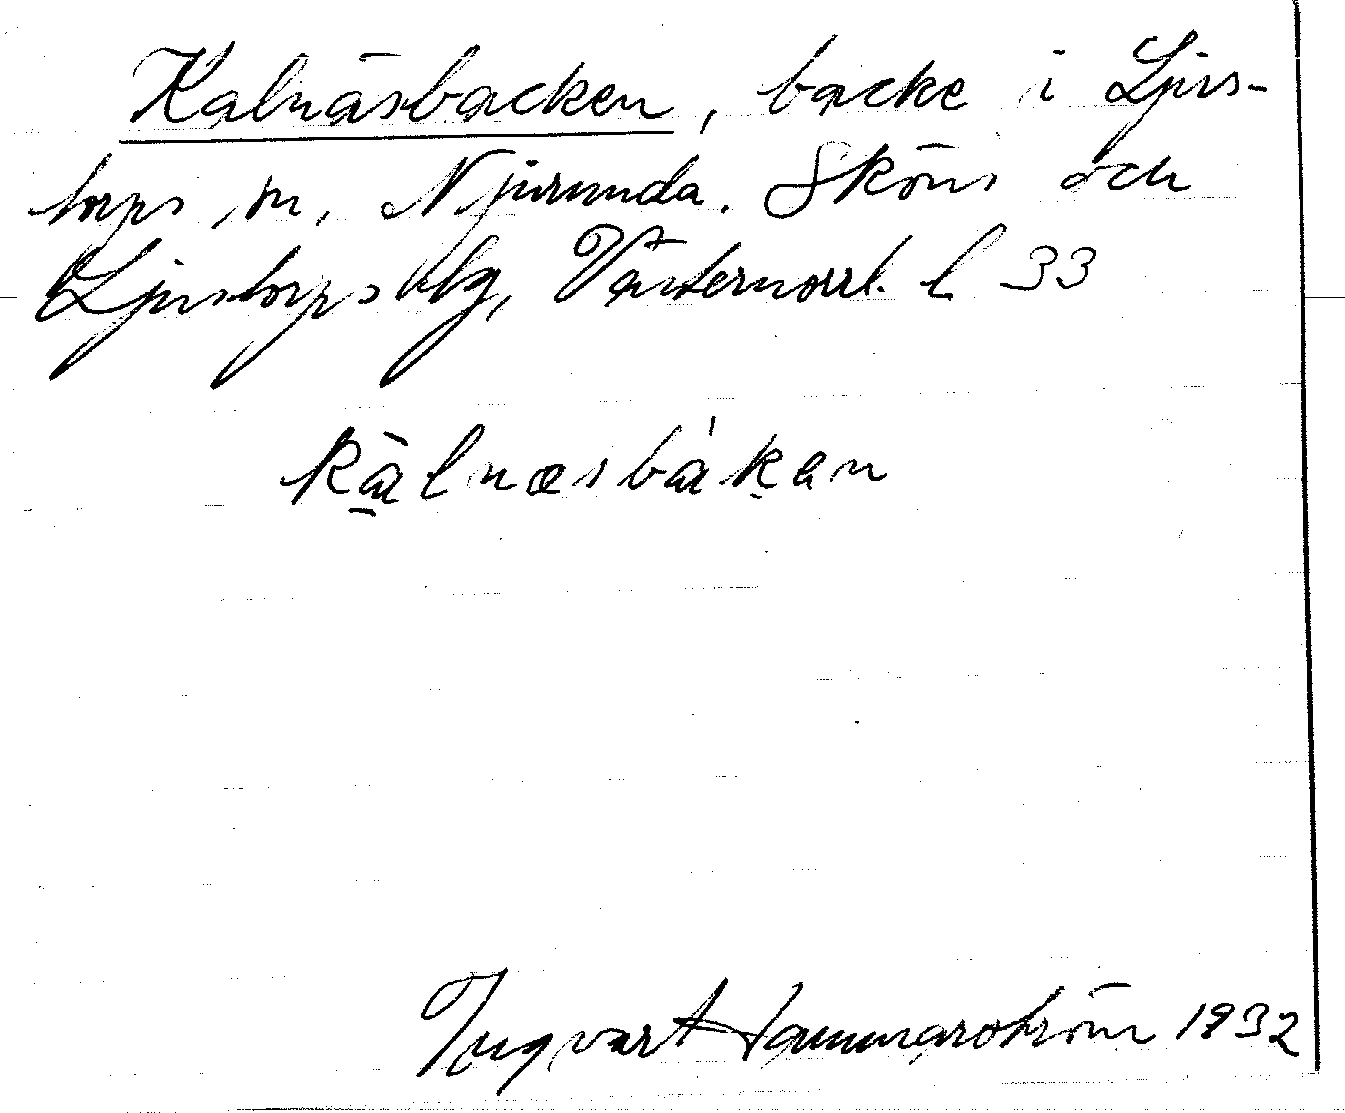 Kalnäsbacken, backe i Ljus-
torps sn, Njurunda, Sköns och
Ljustorps tlg, Västernorrl. l 33
kālnæsbákan
Ingvart Hammarström 1932